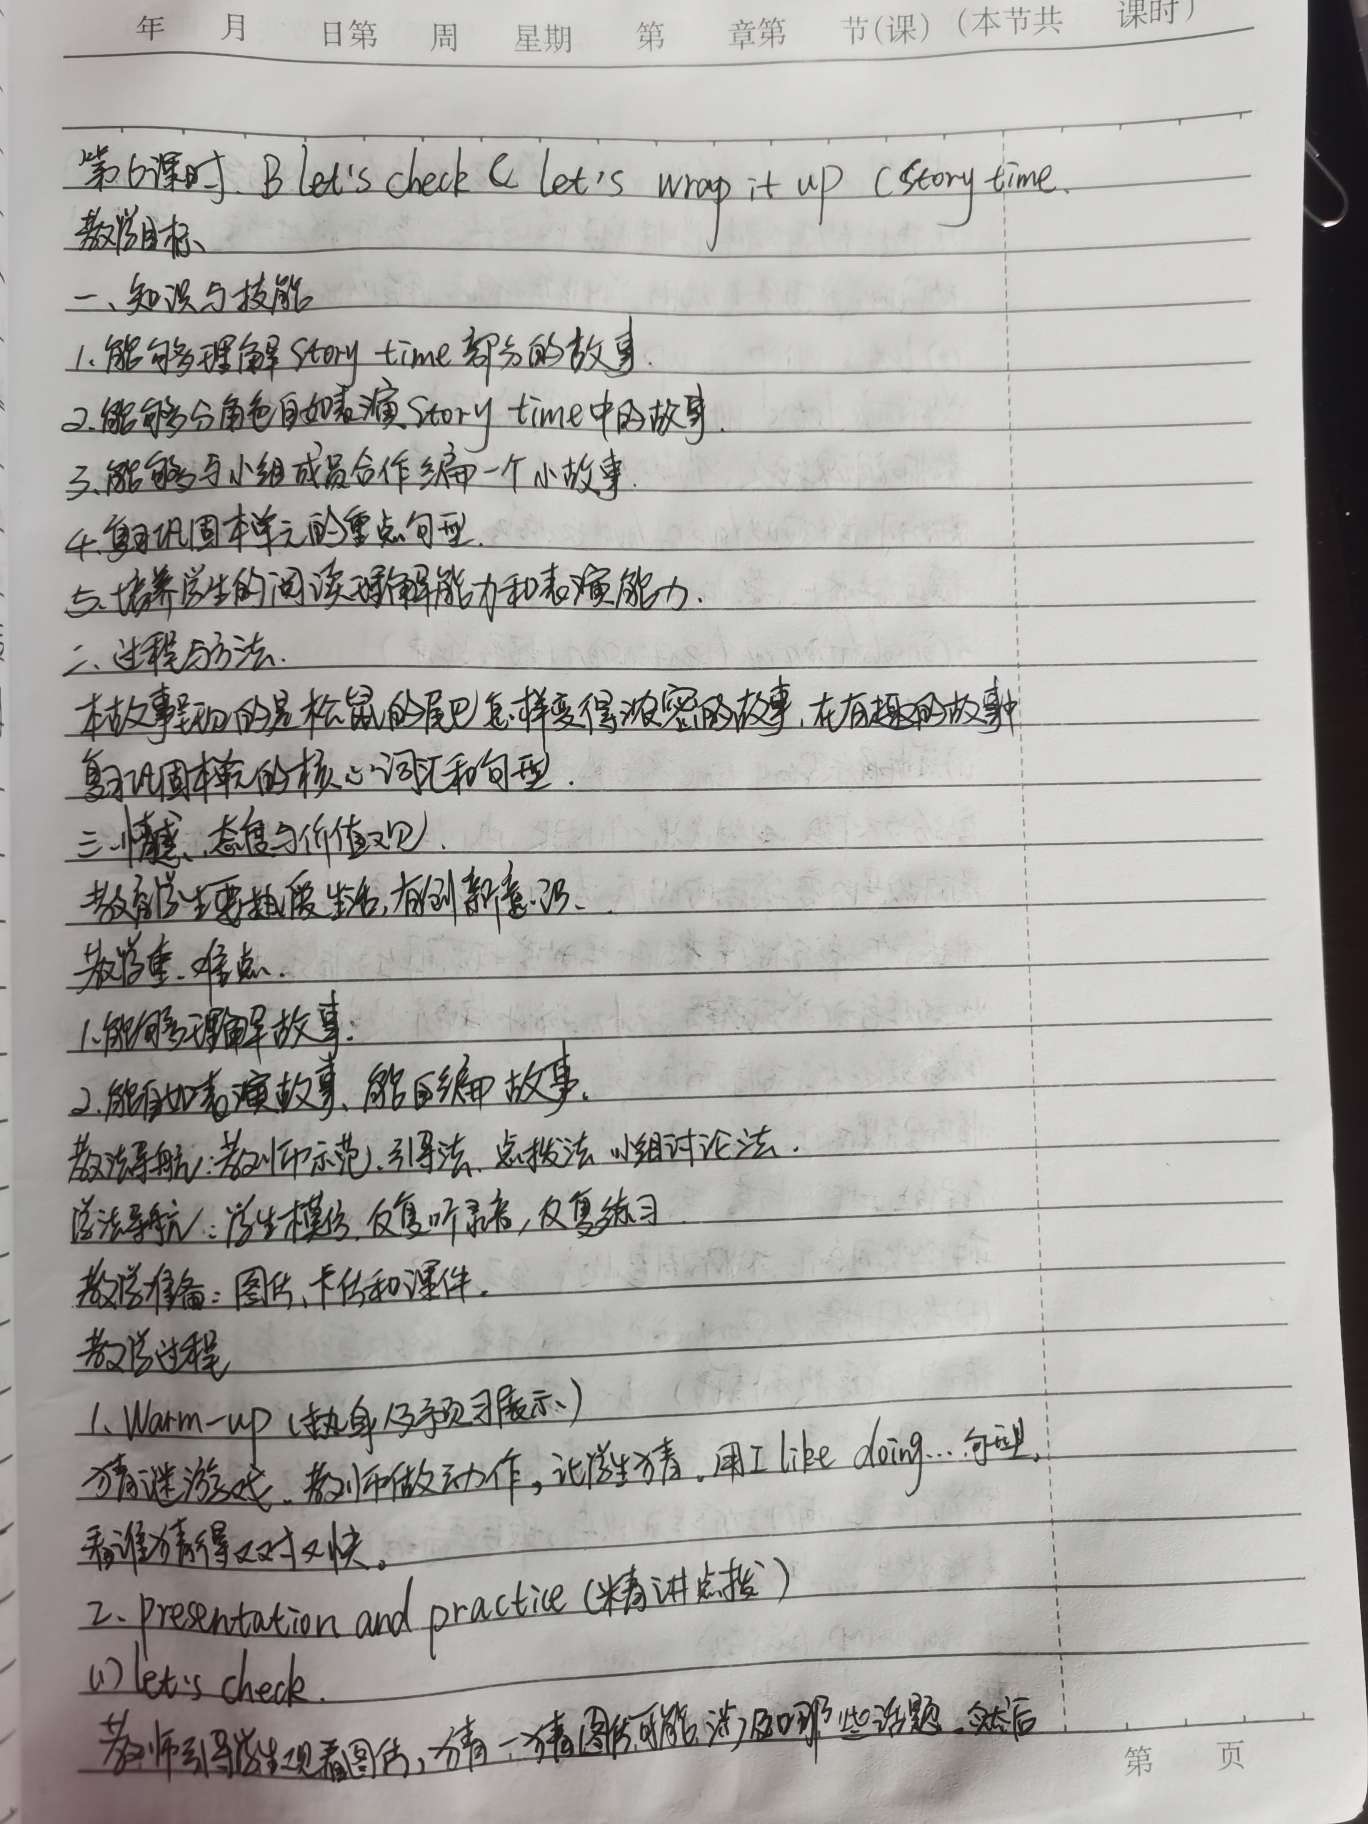 年 月 日第 周 星期 第 章第 节(课)(本节共 课时)
第6课时. B let's check C let's wrap it up C Story time.
教学目标、
一、知识与技能
1.能够理解story time部分的故事.
2.能够分角色自如表演story time中的故事.
3.能够与小组成员合作编一个小故事.
4.复习巩固本单元的重点句型.
5.培养学生的阅读理解能力和表演能力.
二.过程与方法.
本故事呈现的是松鼠的尾巴怎样变得浓密的故事,在有趣的故事中
复习巩固本单元的核心词汇和句型.
三.情感、态度与价值观.
教育学生要热爱生活,有创新意识.
教学重.难点.
1.能够理解故事.
2.能自如表演故事、能自编故事.
教法导航:教师示范、引导法、点拨法 小组讨论法.
学法导航:学生模仿,反复听录音,反复练习
教学准备:图片、卡片和课件.
教学过程
1. Warm-up (热身/预习展示)
猜谜游戏.教师做动作,让学生猜.用I like doing...句型,
看谁猜得又对又快。
2. Presentation and practice (精讲点拨)
(1) let's check.
教师引导学生观看图片,猜一猜图片可能涉及哪些话题.然后
第 页